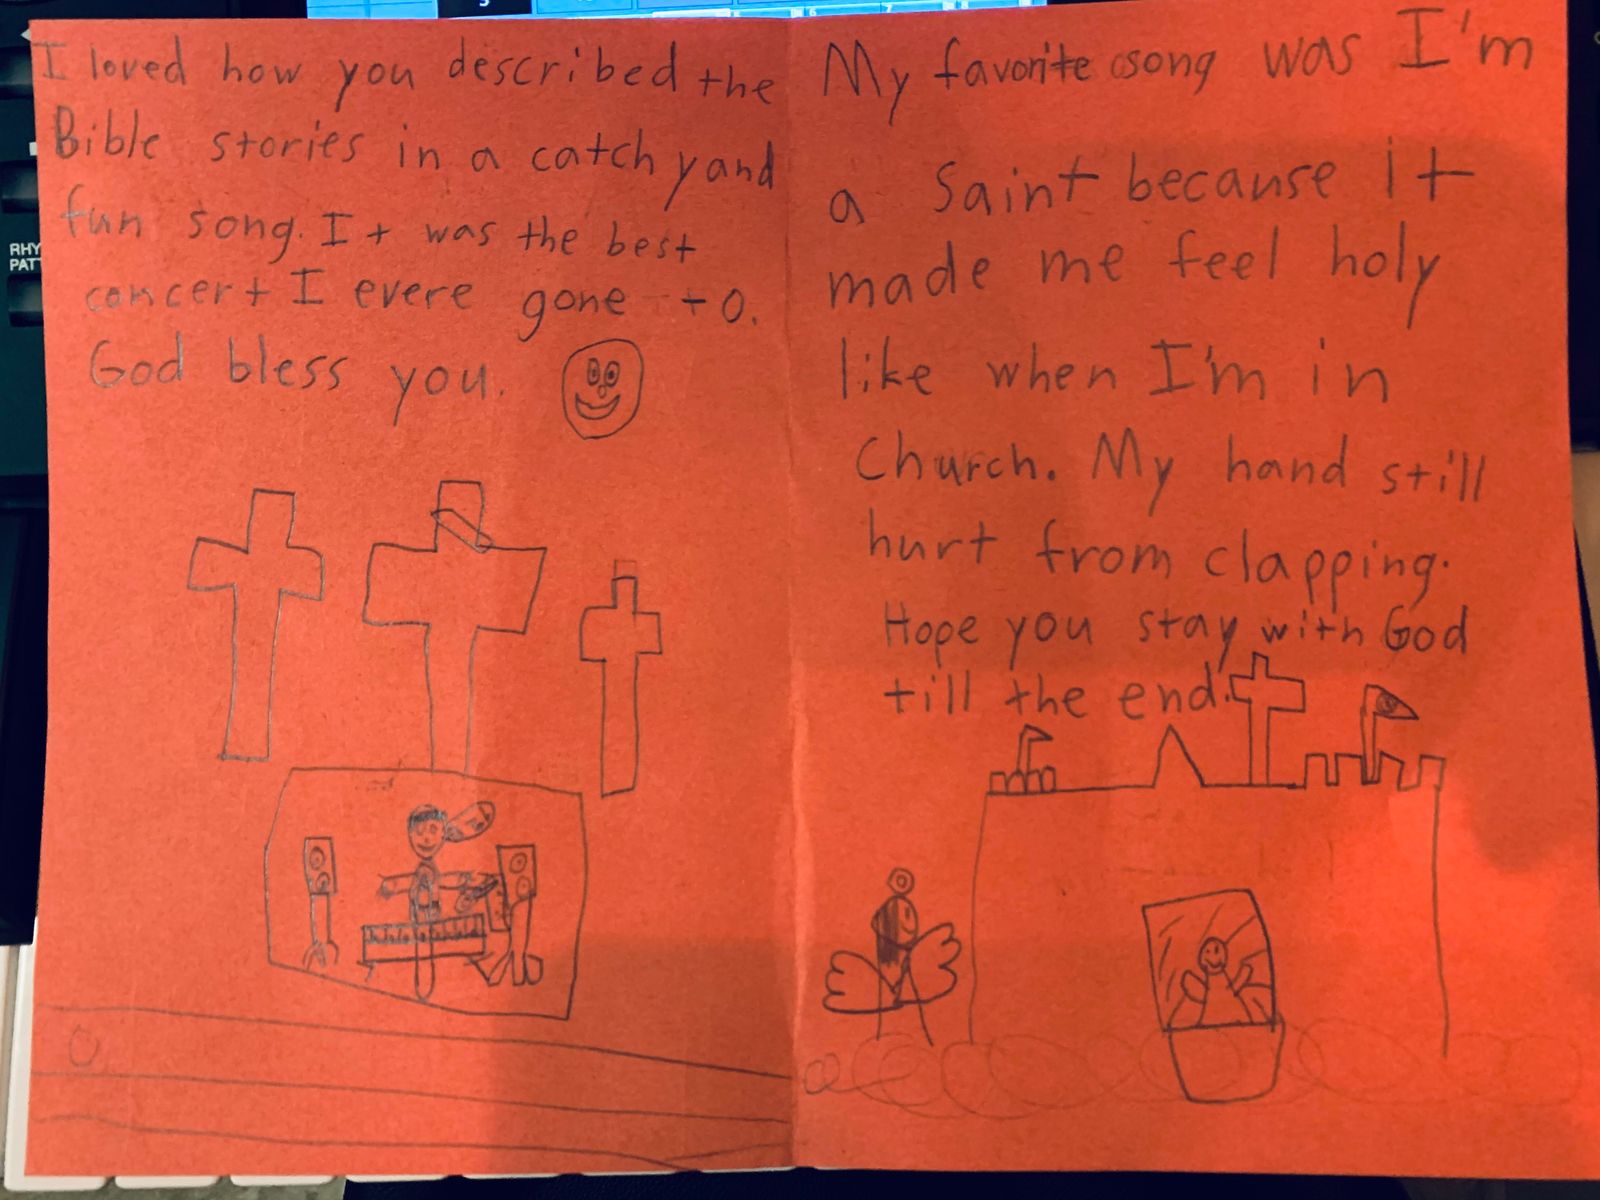 I loved how you described the
Bible stories in a catchy and
fun song. It was the best
concert I evere gone to.
God bless you.
My favorite song was I'm
a Saint because it
made me feel holy
like when I'm in
Church. My hand still
hurt from clapping.
Hope you stay with God
till the end.
RHY
PAT
5
6
7
8